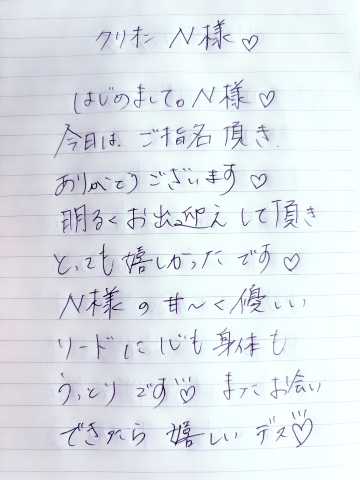 クリオン N様♡
はじめまして。N様♡
今日は、ご指名頂き
ありがとうございます♡
明るくお出迎えして頂き
とっても嬉しかったです♡
N様の甘〜く優しい
リードに心も身体も
うっとりです♡ またお会い
できたら 嬉しい デス♡